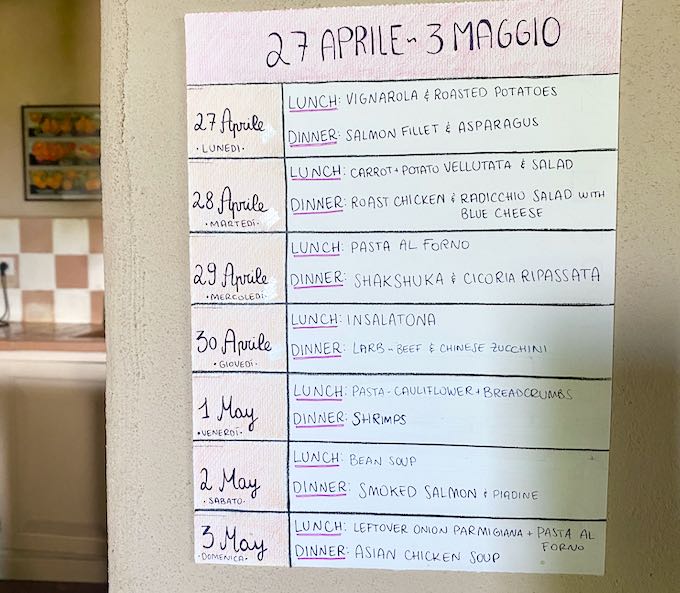 27 APRILE ~ 3 MAGGIO
27 Aprile
• LUNEDI •
LUNCH: VIGNAROLA & ROASTED POTATOES
DINNER: SALMON FILLET & ASPARAGUS
28 Aprile
• MARTEDÌ •
LUNCH: CARROT + POTATO VELLUTATA & SALAD
DINNER: ROAST CHICKEN & RADICCHIO SALAD WITH
BLUE CHEESE
29 Aprile
• MERCOLEDÌ •
LUNCH: PASTA AL FORNO
DINNER: SHAKSHUKA & CICORIA RIPASSATA
30 Aprile
• GIOVEDÌ •
LUNCH: INSALATONA
DINNER: LARB - BEEF & CHINESE ZUCCHINI
1 May
• VENERDÌ •
LUNCH: PASTA - CAULIFLOWER + BREADCRUMBS
DINNER: SHRIMPS
2 May
• SABATO •
LUNCH: BEAN SOUP
DINNER: SMOKED SALMON & PIADINE
3 May
• DOMENICA •
LUNCH: LEFTOVER ONION PARMIGIANA + PASTA AL
FORNO
DINNER: ASIAN CHICKEN SOUP